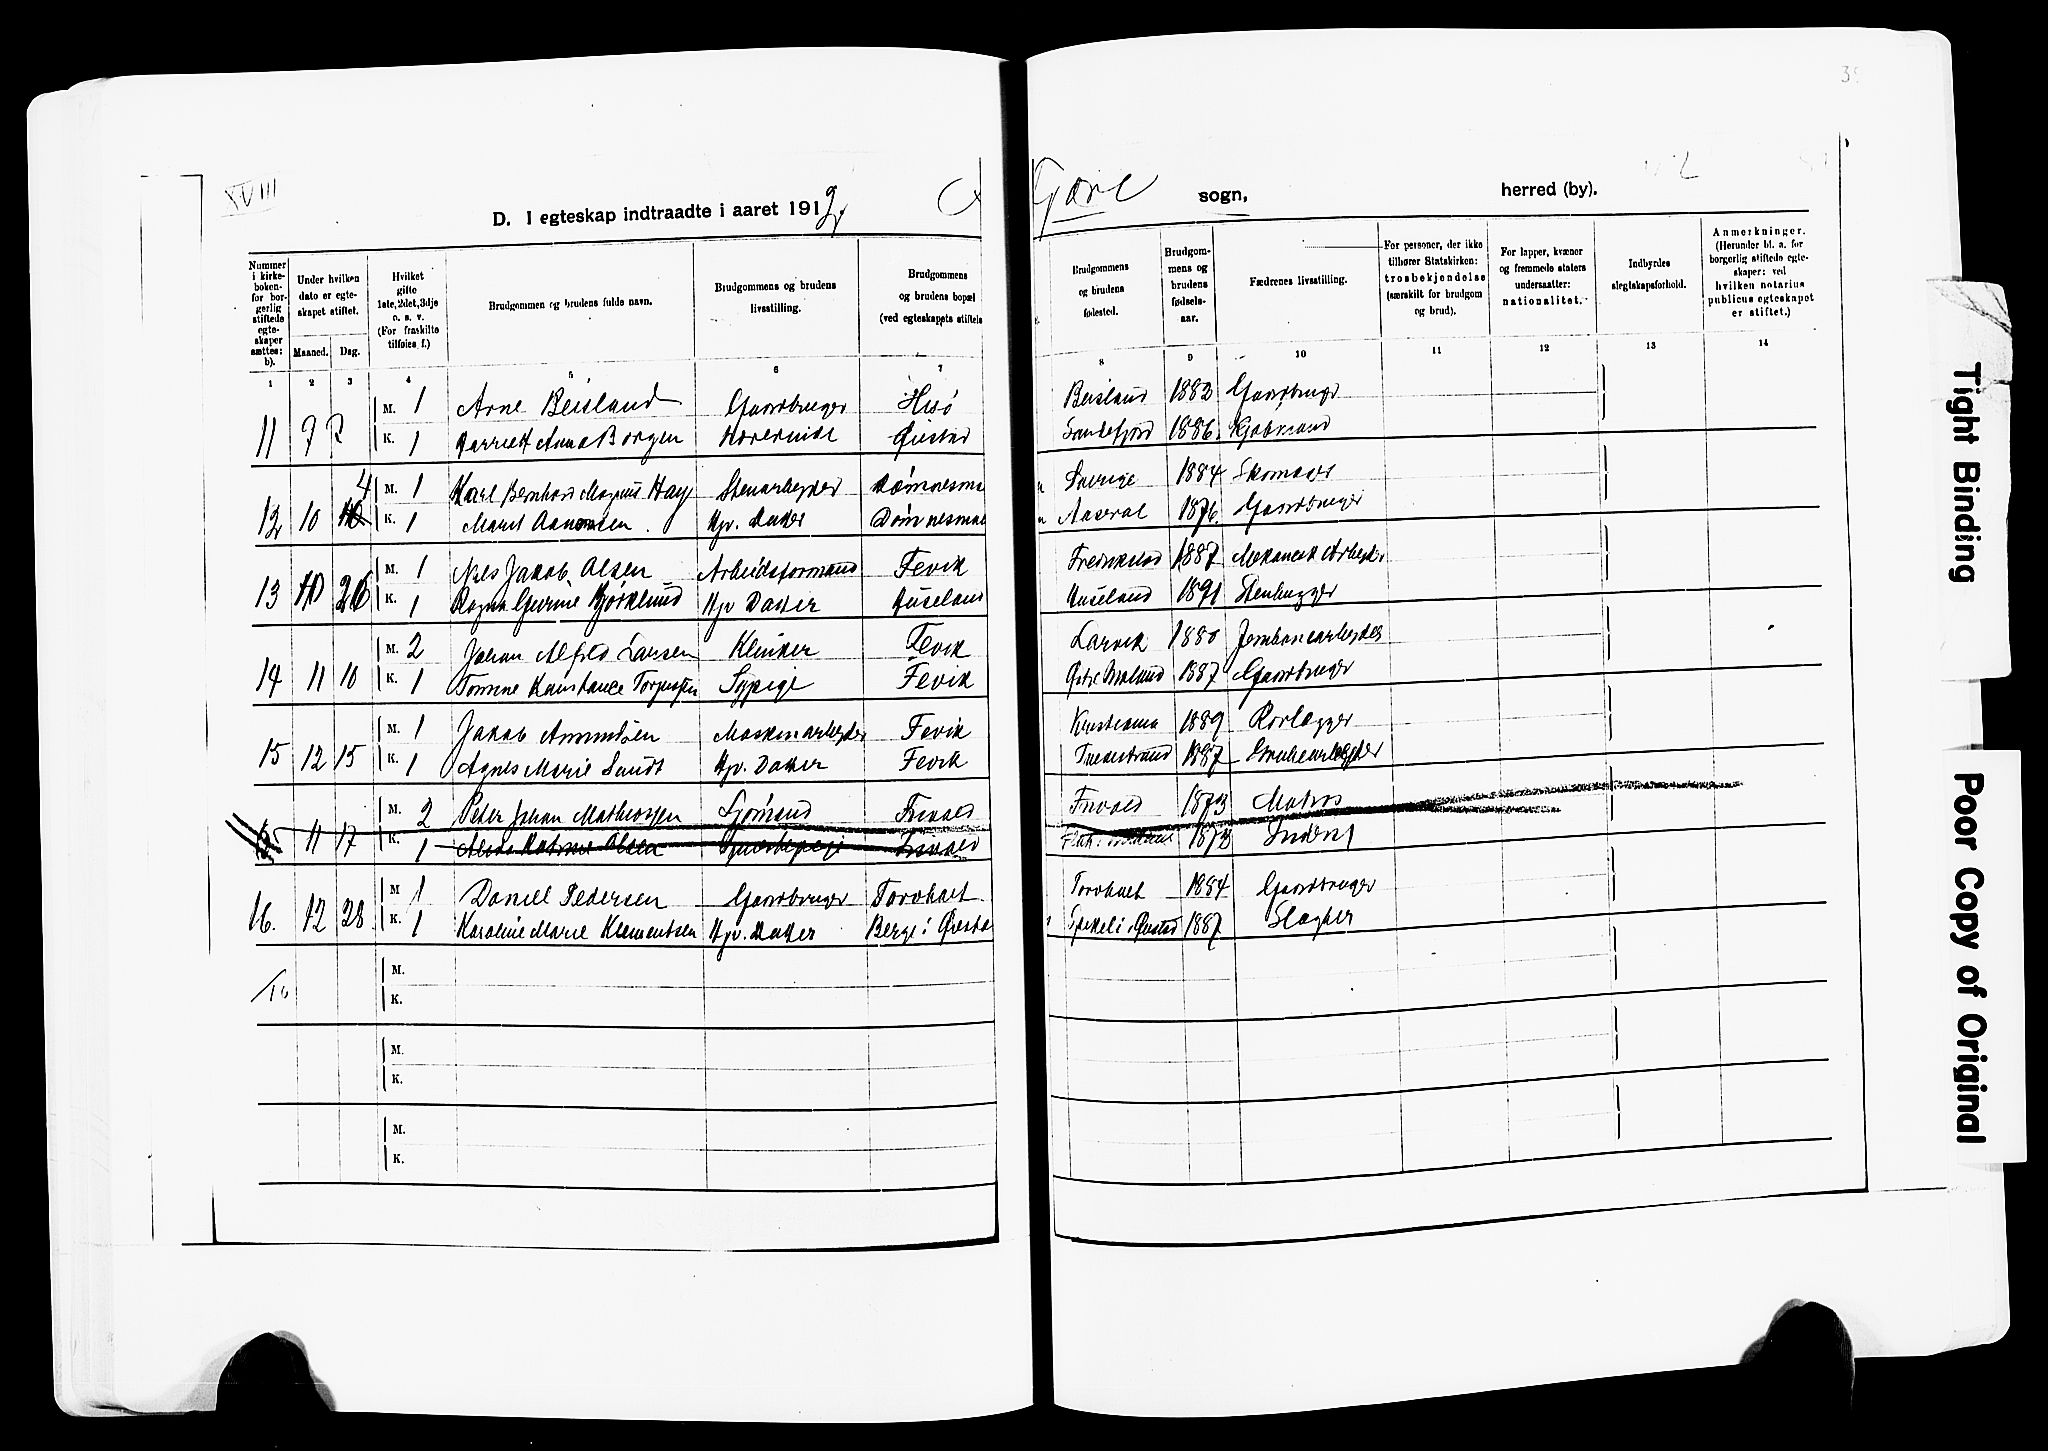 XVIII
D. I egteskap indtraadte i aaret 1912.
Gære sogn, herred (by).
Nummer i kirkeboken for borgerlig stiftede egteskaper sættes: b).
Under hvilken dato er egteskapet stiftet.
Maaned. Dag.
Hvilket gifte 1ste, 2det, 3dje o. s. v. (For fraskilte tilføies f.)
Brudgommen og brudens fulde navn.
Brudgommens og brudens livsstilling.
Brudgommens og brudens bopæl (ved egteskapets stiftels
Brudgommens og brudens fødested.
Brudgommens og brudens fødselsaar.
Fædrenes livsstilling.
For personer, der ikke tilhører Statskirken: trosbekjendelse (særskilt for brudgom og brud).
For lapper, kvæner og fremmede staters undersaatter: nationalitet.
Indbyrdes slegtskapsforhold.
Anmerkninger. (Herunder bl. a. for borgerlig stiftede egteskaper: ved hvilken notarius publicus egteskapet er stiftet.)
1 2 3 4 5 6 7 8 9 10 11 12 13 14
11 9 2 M. 1 Arne Beisland Gaardbruger Hisø Beisland 1882 Gaardbruger
K. 1 Harriet Anna Borgen Øiestad Sandefjord 1886 Kjøbmand
12 10 4 M. 1 Karl Bernhard Magnus Hag Stenarbeider Dømnesmo Sverige 1884 Skomager
K. 1 Marit Aanonsen Hjv. Datter Dømnesmo Aaseral 1876 Gaardbruger
13 10 26 M. 1 Nils Jakob Olsen Arbeidsformand Fevik Fredrikstad 1887 Mekanisk Arbeider
K. 1 Ragna Gurine Bjørklund Hjv Datter Huseland Huseland 1891 Stenhugger
14 11 10 M. 2 Johan Alfred Larsen Klinker Fevik Larvik 1880 Jernbanearbeider
K. 1 Tomine Konstance Torjussen Sypige Fevik 1887 Gaardbruger
15 12 15 M. 1 Jakob Amundsen Maskinarbeider Fevik Kristiania 1889 Rørlægger
K. 1 Agnes Marie Sundt Hjv. Datter Fevik Tvedestrand 1887
11 17 M. 2 Peter Johan Mathiassen Sjømand Frivold Frivold 1873 Matros
K. 1 Olsen Frivold 1873
16. 12 28 M 1 Daniel Pedersen Gaardbruger Torvholt Torvholt 1884 Gaardbruger
K. 1 Karoline Marie Klementsen Hjv. Datter Berge i Øiesta Øiestad 1887 Slagter
M.
K.
M.
K.
M.
K.
Tight Binding
Poor Copy of Original